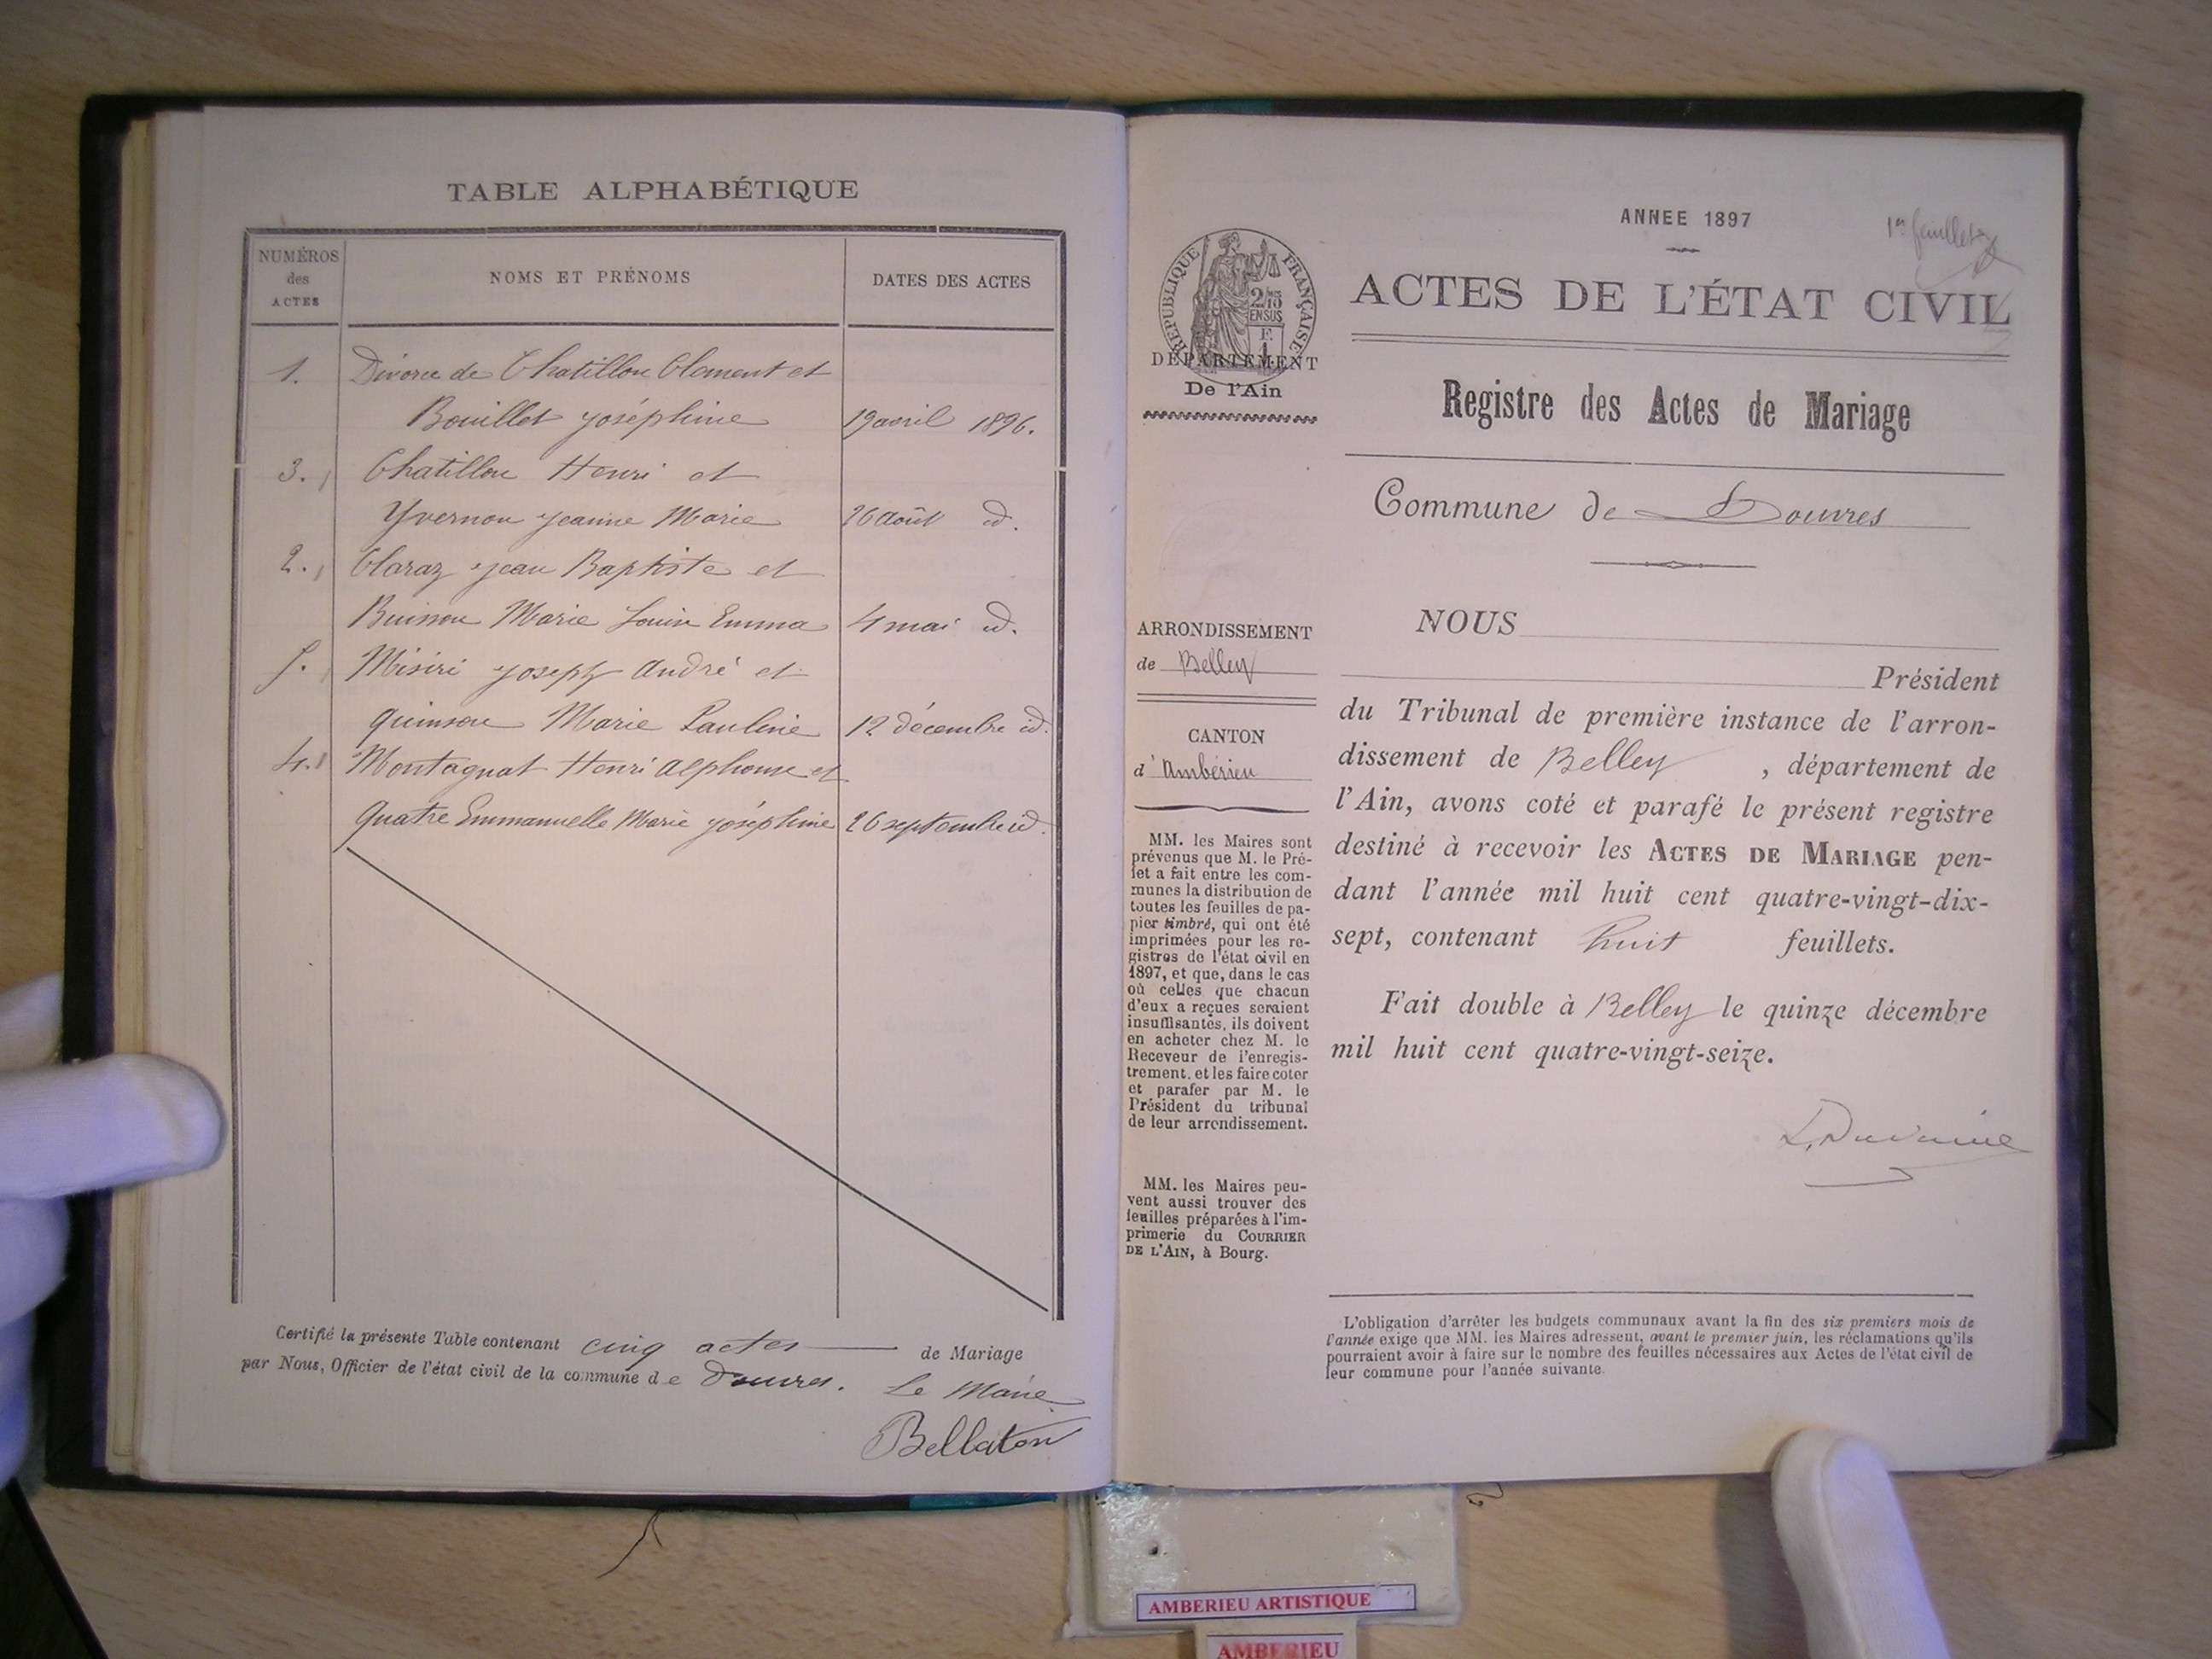 TABLE ALPHABÉTIQUE
NUMÉROS
des
ACTES
NOMS ET PRÉNOMS
DATES DES ACTES
1. Divorce de Chatillon Clément et
Bouillet Joséphine 19 avril 1896.
3. Chatillon Henri et
Yvernon Jeanne Marie 26 Août id.
2. Claraz Jean Baptiste et
Buisson Marie Louise Emma 4 mai id.
5. Misiri Joseph André et
Quinson Marie Pauline 12 décembre id.
4. Montagnat Henri Alphonse et
Quatre Emmanuelle Marie Joséphine 26 septembre id.
Certifié la présente Table contenant cinq actes de Mariage
par Nous, Officier de l'état civil de la commune de Douvres. Le Maire
Bellaton
ANNEE 1897
1er feuillet
REPUBLIQUE FRANÇAISE
2/10 EN SUS
DÉPARTEMENT
De l'Ain
ACTES DE L'ÉTAT CIVIL
Registre des Actes de Mariage
Commune de Douvres
ARRONDISSEMENT
de Belley
CANTON
d'Ambérieu
MM. les Maires sont
prévenus que M. le Pré-
fet a fait entre les com-
munes la distribution de
toutes les feuilles de pa-
pier timbré, qui ont été
imprimées pour les re-
gistres de l'état civil en
1897, et que, dans le cas
où celles que chacun
d'eux a reçues seraient
insuffisantes, ils doivent
en acheter chez M. le
Receveur de l'enregis-
trement, et les faire coter
et parafer par M. le
Président du tribunal
de leur arrondissement.
MM. les Maires peu-
vent aussi trouver des
feuilles préparées à l'im-
primerie du COURRIER
DE L'AIN, à Bourg.
NOUS
Président
du Tribunal de première instance de l'arron-
dissement de Belley, département de
l'Ain, avons coté et parafé le présent registre
destiné à recevoir les ACTES DE MARIAGE pen-
dant l'année mil huit cent quatre-vingt-dix-
sept, contenant huit feuillets.
Fait double à Belley le quinze décembre
mil huit cent quatre-vingt-seize.
L'obligation d'arrêter les budgets communaux avant la fin des six premiers mois de
l'année exige que MM. les Maires adressent, avant le premier juin, les réclamations qu'ils
pourraient avoir à faire sur le nombre des feuilles nécessaires aux Actes de l'état civil de
leur commune pour l'année suivante.
AMBERIEU ARTISTIQUE
AMBERIEU